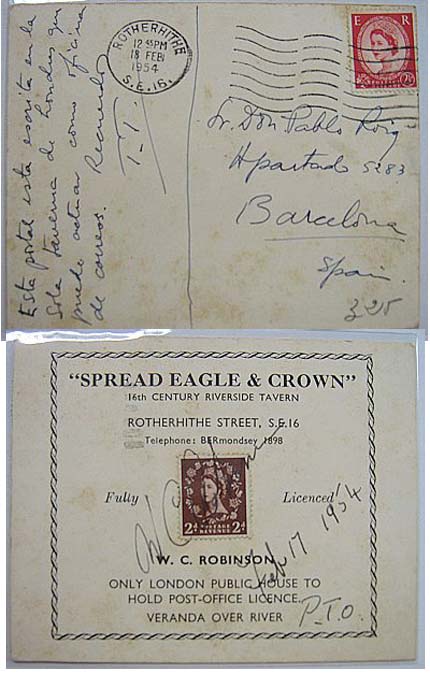 Esta postal esta escrita en la
Sola taverna de Londres que
puede actuar como oficina
de correos. Recuerdo
T.T.
ROTHERHITHE
12 45 PM
18 FEB
1954
S.E.16.
E R
2½D
Sr. Don Pablo Roig
Apartado 5283
Barcelona
Spain.
325
"SPREAD EAGLE & CROWN"
16th CENTURY RIVERSIDE TAVERN
ROTHERHITHE STREET, S.E.16
Telephone: BERmondsey 1898
POSTAGE REVENUE
2D 2D
Fully Licenced
Feb 17 1954
W. C. ROBINSON
ONLY LONDON PUBLIC HOUSE TO
HOLD POST-OFFICE LICENCE.
VERANDA OVER RIVER
P.T.O.